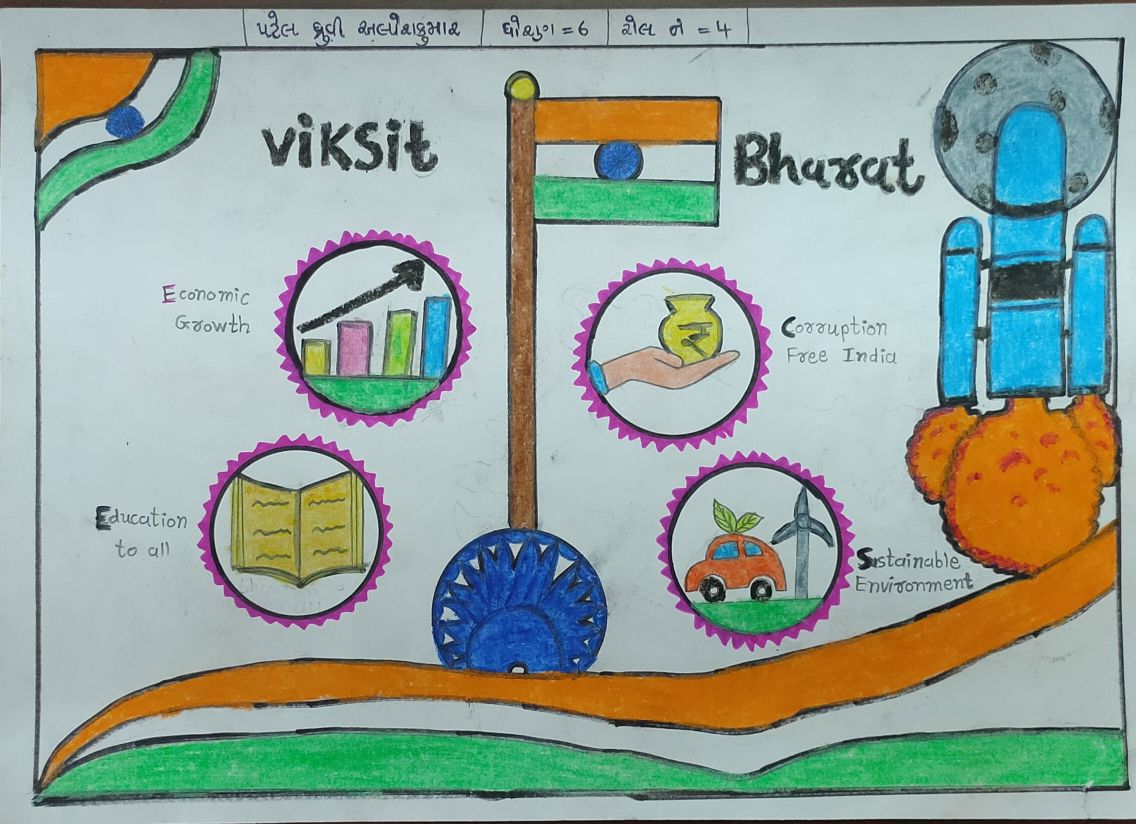 પટેલ ધ્રુવી અલ્પેશકુમાર ધોરણ = 6 રોલ નં = 4
Viksit Bharat
Economic
Growth
Corruption
Free India
Education
to all
Sustainable
Environment